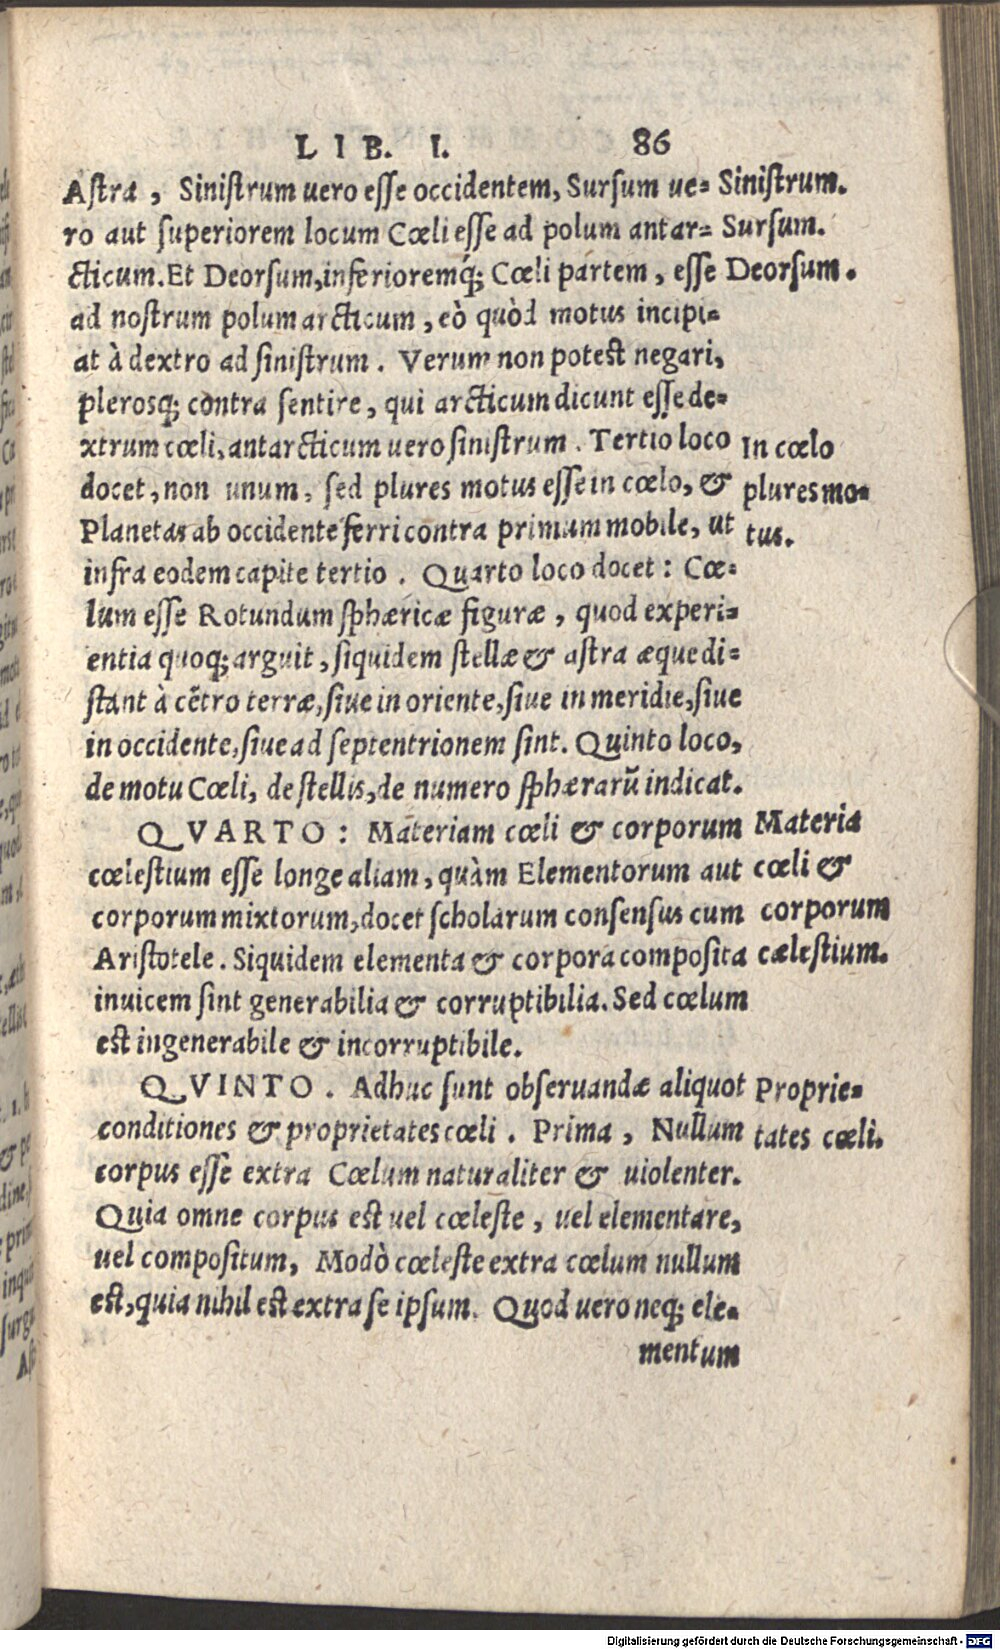 LIB. I. 86
Astra, Sinistrum uero esse occidentem, Sursum ue= Sinistrum.
ro aut superiorem locum Cœli esse ad polum antar= Sursum.
cticum. Et Deorsum, inferioremq́; Cœli partem, esse Deorsum.
ad nostrum polum arcticum, eò quòd motus incipi=
at à dextro ad sinistrum. Verum non potest negari,
plerosq; contra sentire, qui arcticum dicunt esse de=
xtrum cœli, antarcticum uero sinistrum. Tertio loco In cœlo
docet, non unum, sed plures motus esse in cœlo, & plures mo=
Planetas ab occidente ferri contra primum mobile, ut tus.
infra eodem capite tertio. Quarto loco docet: Cœ=
lum esse Rotundum sphæricæ figuræ, quod experi=
entia quoq; arguit, siquidem stellæ & astra æque di=
stant à cẽtro terræ, siue in oriente, siue in meridie, siue
in occidente, siue ad septentrionem sint. Quinto loco,
de motu Cœli, de stellis, de numero sphærarũ indicat.
QVARTO: Materiam cœli & corporum Materia
cœlestium esse longe aliam, quàm Elementorum aut cœli &
corporum mixtorum, docet scholarum consensus cum corporum
Aristotele. Siquidem elementa & corpora composita cælestium.
inuicem sint generabilia & corruptibilia. Sed cœlum
est ingenerabile & incorruptibile.
QVINTO. Adhuc sunt obseruandæ aliquot Proprie=
conditiones & proprietates cœli. Prima, Nullum tates cœli.
corpus esse extra Cœlum naturaliter & uiolenter.
Quia omne corpus est uel cœleste, uel elementare,
uel compositum, Modò cœleste extra cœlum nullum
est, quia nihil est extra se ipsum. Quod uero neq; ele=
mentum
Digitalisierung gefördert durch die Deutsche Forschungsgemeinschaft - DFG